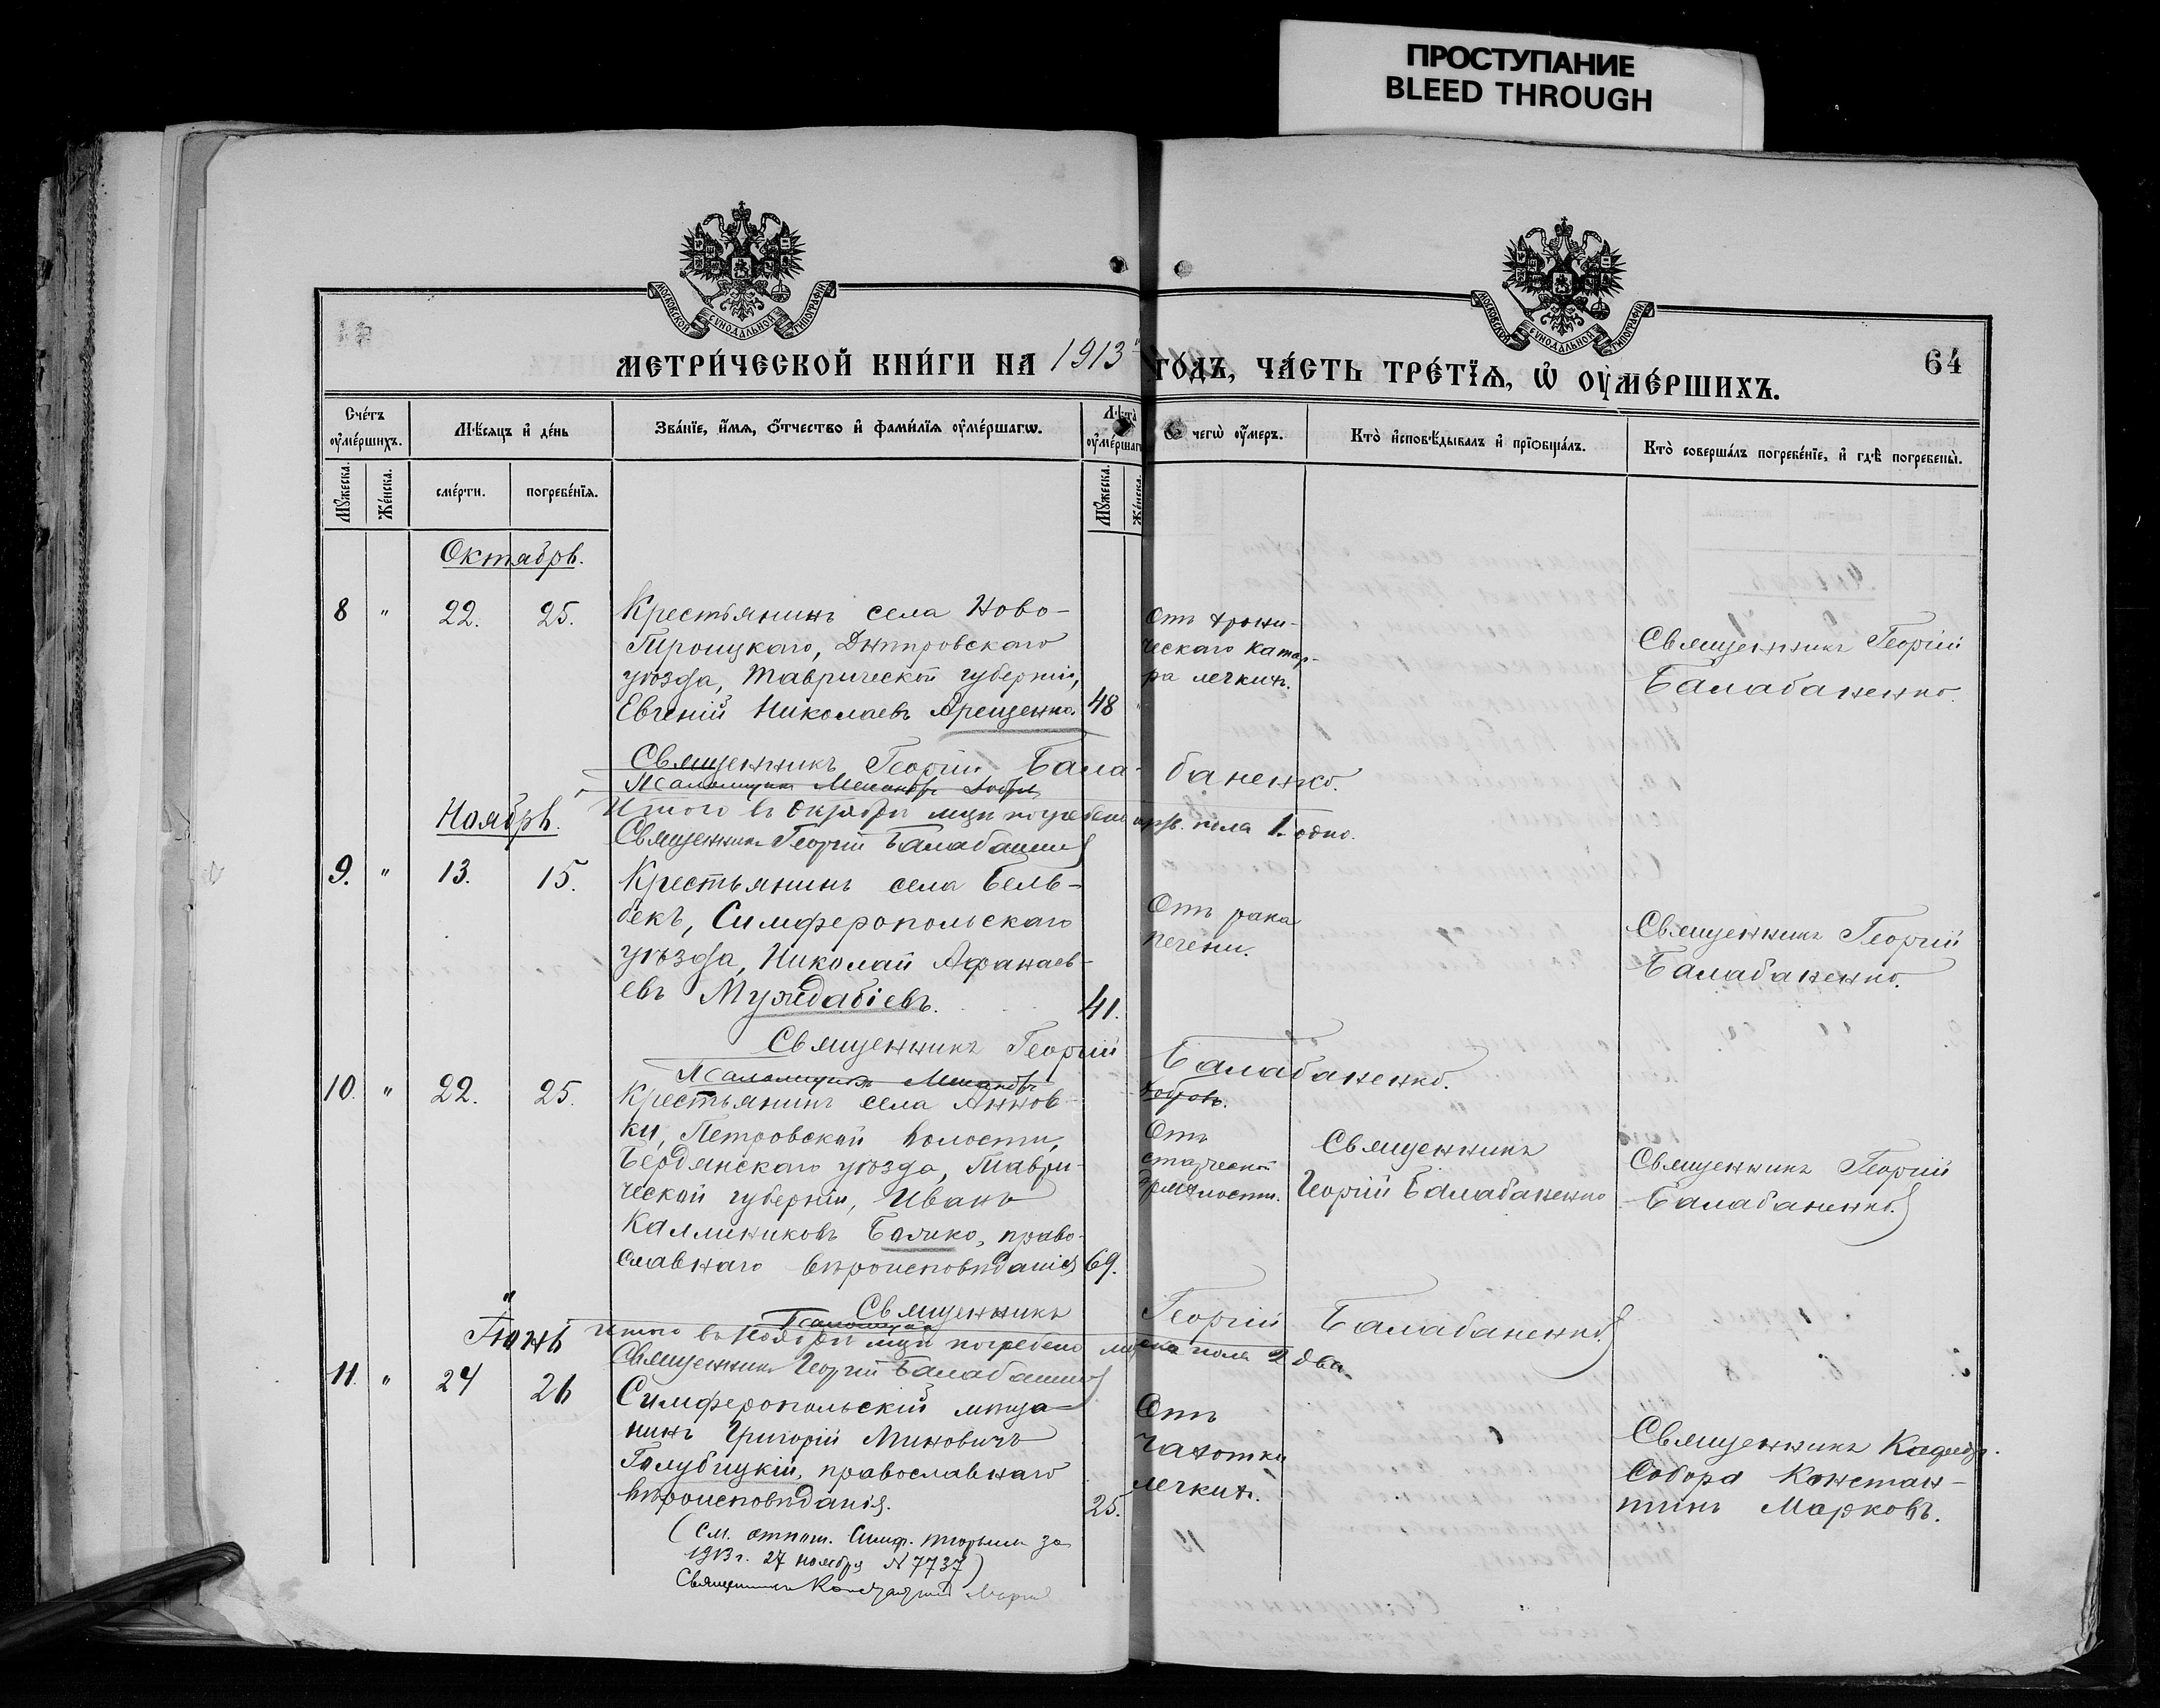 ПРОСТУПАНИЕ
BLEED THROUGH
МОСКОВСКОЙ СѴНОДАЛЬНОЙ ТИПОГРАФІИ
МОСКОВСКОЙ СѴНОДАЛЬНОЙ ТИПОГРАФІИ
МЕТРИ́ЧЕСКОЙ КНИ́ГИ НА 1913 ГО́ДЪ, ЧА́СТЬ ТРЕ́ТЇѦ, Ѡ҆ ОУ҆МЕ́РШИХЪ.
64
Сче́тъ оу҆ме́ршихъ.
Мѣ́сѧцъ и҆ де́нь
Зва́нїе, и҆́мѧ, ѻ҆́тчество и҆ фами́лїѧ оу҆ме́ршагѡ.
Лѣ́та оу҆ме́ршаг
чегѡ̀ оу҆́меръ.
Кто̀ и҆сповѣ́дывалъ и҆ прїѡбща́лъ.
Кто̀ соверша́лъ погребе́нїе, и҆ гдѣ̀ погребены̀.
Мꙋ́жеска.
Же́нска.
сме́рти.
погребе́нїѧ.
Мꙋ́жеска.
Же́нска.
Октябрь.
8 " 22. 25. Крестьянинъ села Ново-
Троицкаго, Днѣпровскаго
уѣзда, Таврической губерніи,
Евгеній Николаевъ Арещенко. 48
Отъ хрони-
ческаго катар-
ра легкихъ.
Священникъ Георгій
Балабаненко.
Священникъ Георгій Бала- баненко.
Псаломщикъ
Итого въ Октябрѣ мцѣ погребено муж. пола 1. одно.
Ноябрь.
Священникъ Георгій Балабаненко
9. " 13. 15. Крестьянинъ села Бель-
бекъ, Симферопольскаго
уѣзда, Николай Афанась-
евъ Муждабіевъ. 41.
Отъ рака
печени.
Священникъ Георгій
Балабаненко.
Священникъ Георгій Балабаненко.
Псаломщикъ
10. " 22. 25. Крестьянинъ села Аннов-
ки, Петровской волости,
Бердянскаго уѣзда, Таври-
ческой губерніи, Иванъ
Каллиниковъ Балко, право-
славнаго вѣроисповѣданія 69.
Отъ
старческой
дряхлости.
Священникъ
Георгій Балабаненко
Священникъ Георгій
Балабаненко.
Священникъ Георгій Балабаненко.
Псаломщикъ
Итого въ Ноябрѣ мцѣ погребено мужска пола 2 два
Іюнь
Священникъ Георгій Балабаненко
11. " 24 26 Симферопольскій мѣща-
нинъ Григорій Миновичъ
Голубицкій, православнаго
вѣроисповѣданія. 25.
(См. отнош. Симф. тюрьмы за
1913 г. 27 ноября N 7737)
Священникъ Константинъ Марковъ
Отъ
чахотки
легкихъ.
Священникъ Кафедр.
Собора Констан-
тинъ Марковъ.